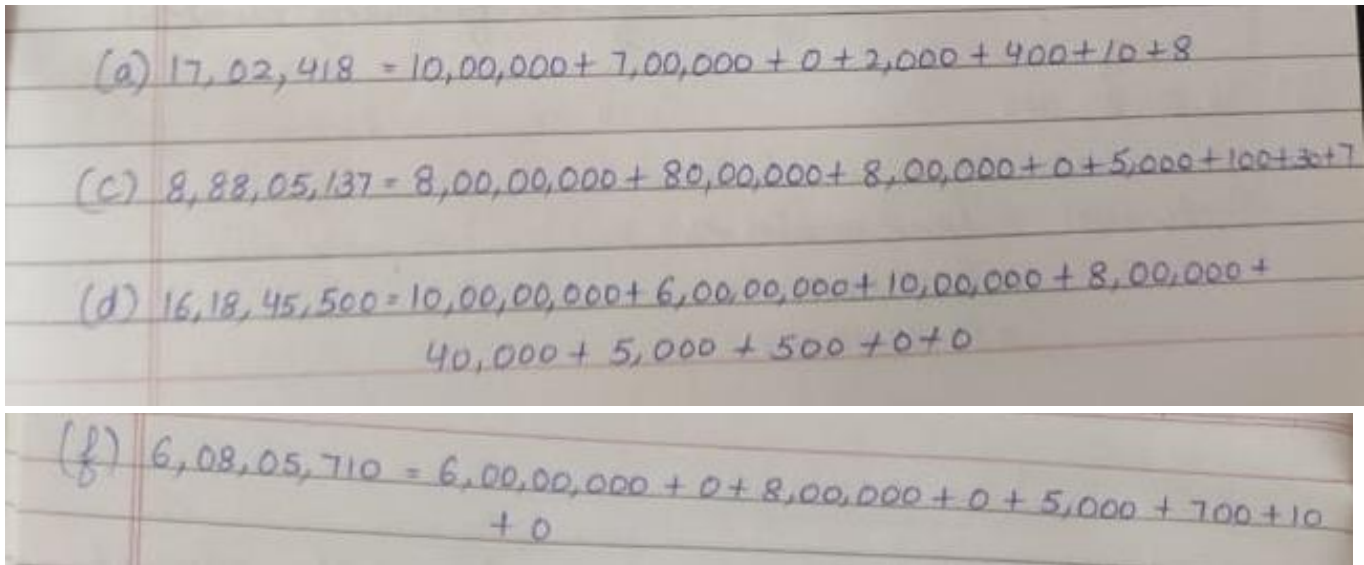 (a) 17,02,418 = 10,00,000 + 7,00,000 + 0 + 2,000 + 400 + 10 + 8
(c) 8,88,05,137 = 8,00,00,000 + 80,00,000 + 8,00,000 + 0 + 5,000 + 100 + 30 + 7
(d) 16,18,45,500 = 10,00,00,000 + 6,00,00,000 + 10,00,000 + 8,00,000 +
40,000 + 5,000 + 500 + 0 + 0
(f) 6,08,05,710 = 6,00,00,000 + 0 + 8,00,000 + 0 + 5,000 + 700 + 10
+ 0